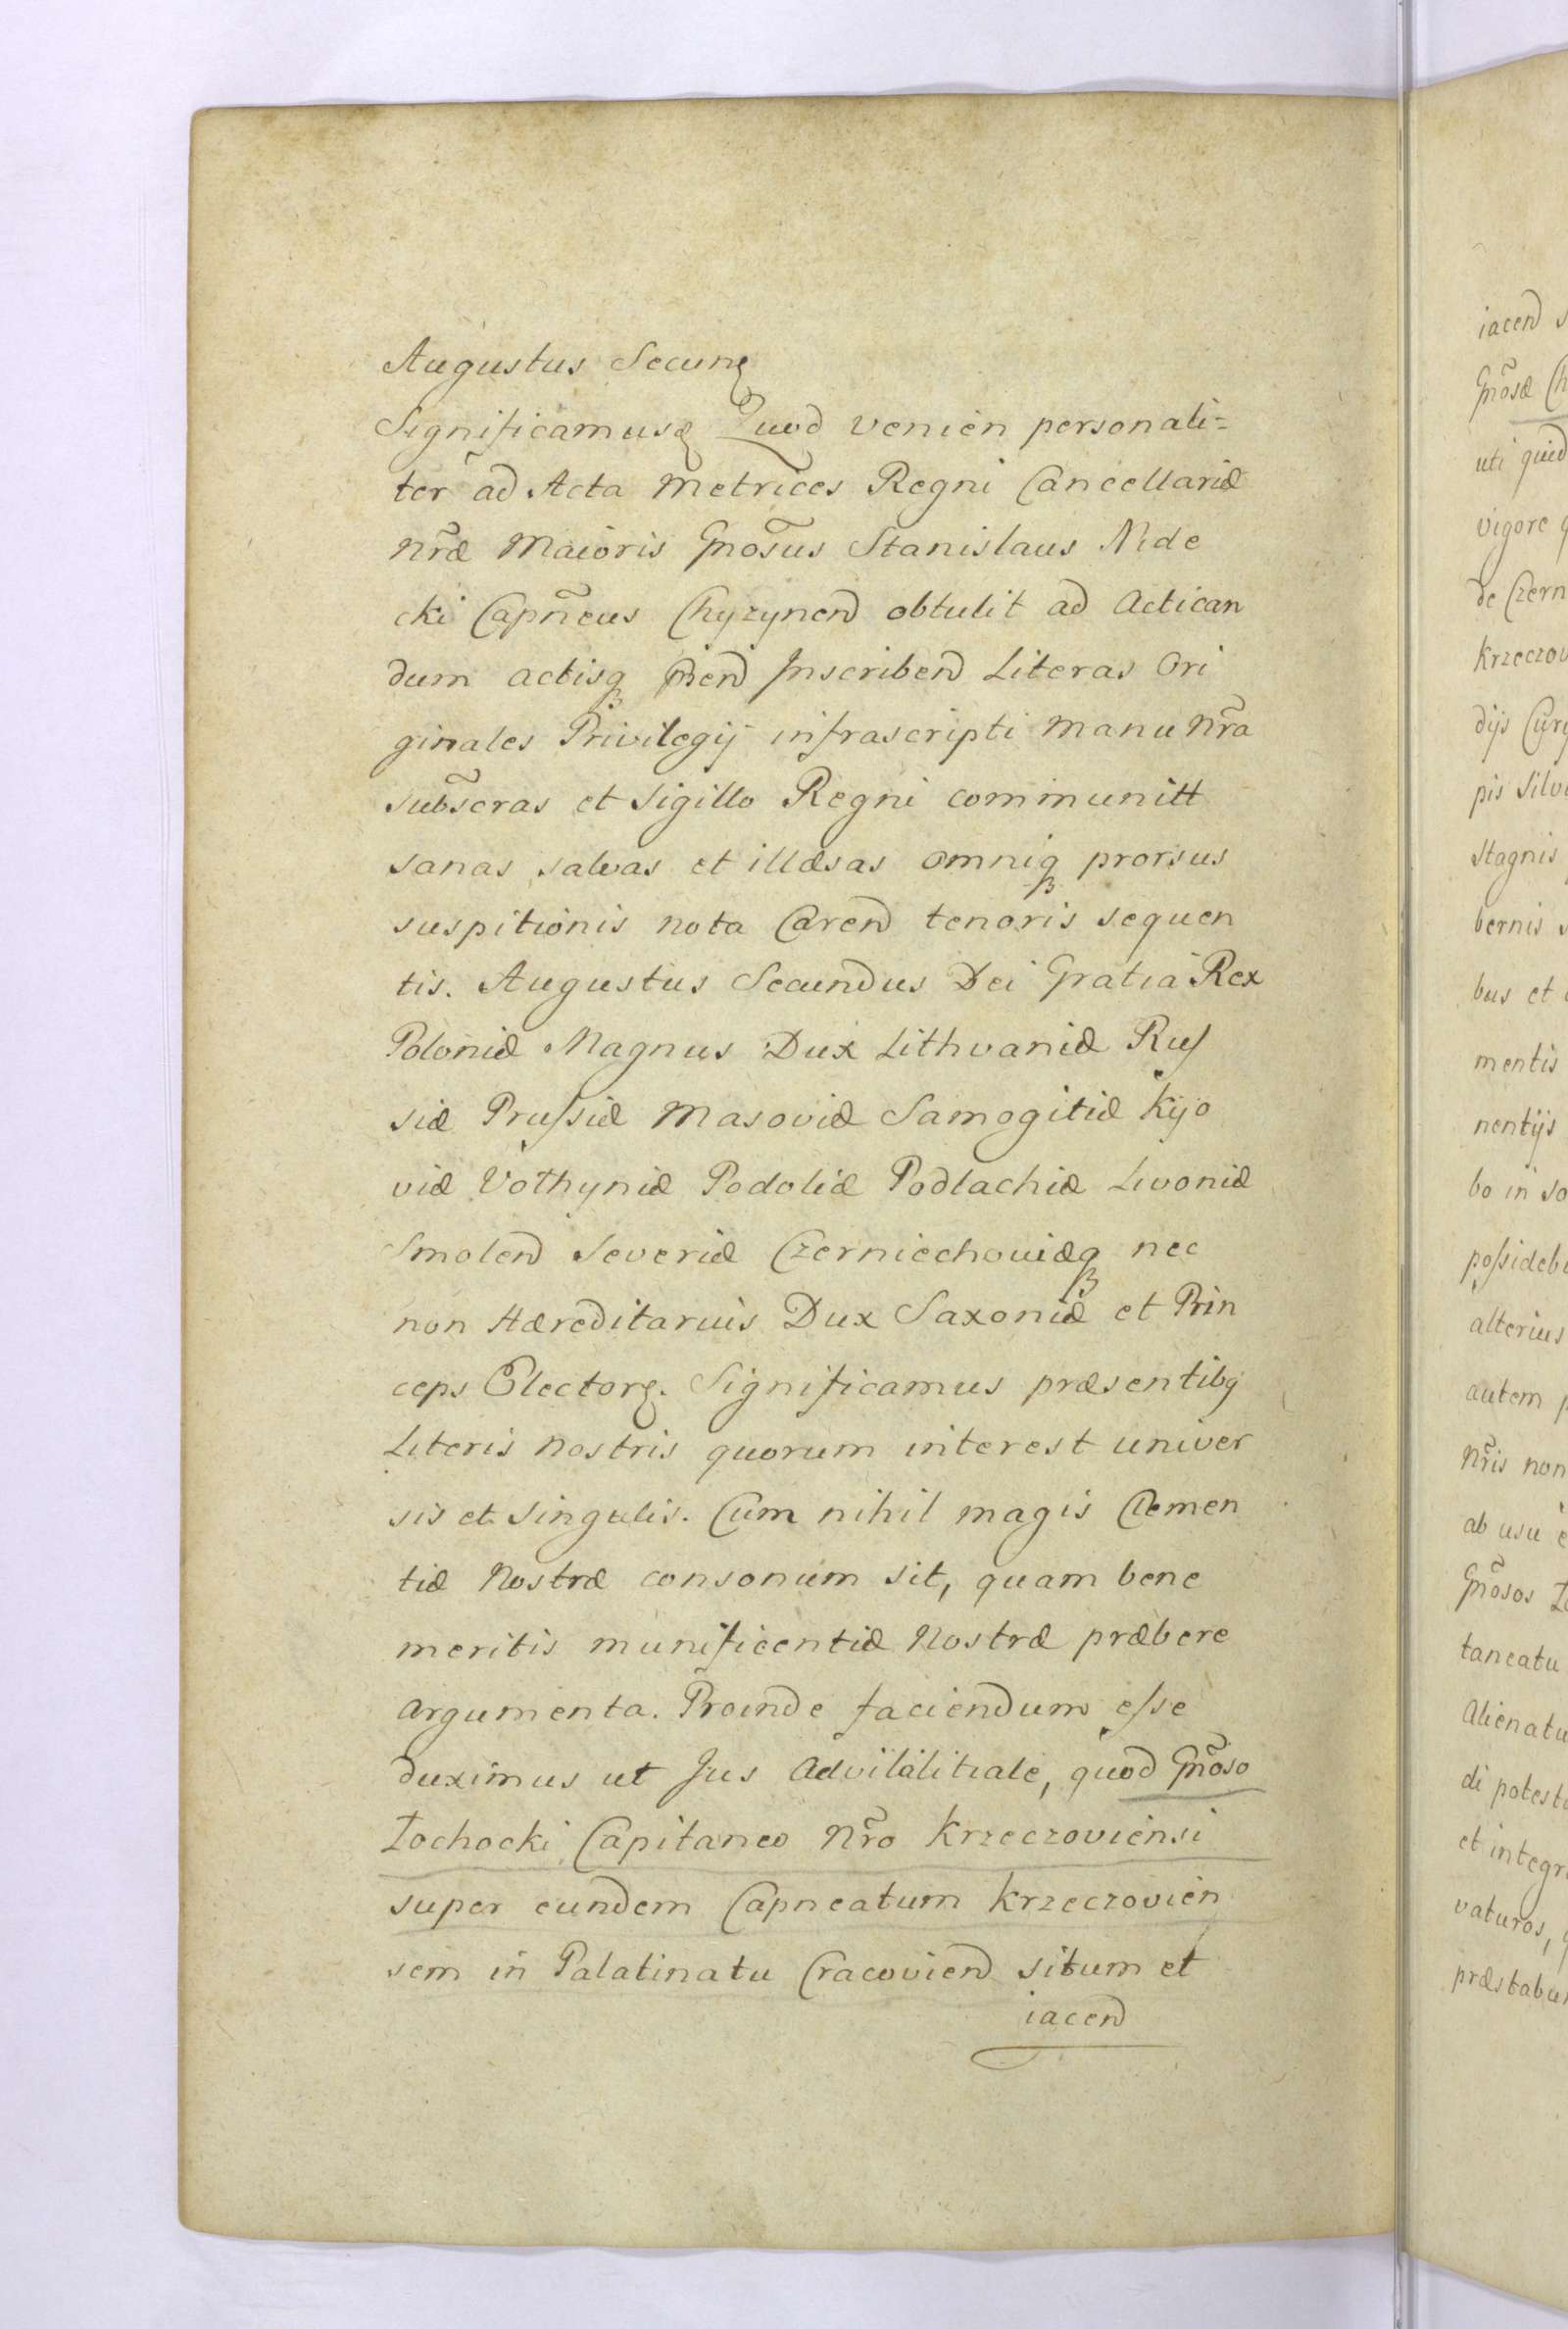 Augustus Secunꝫ
Significamusꝫ Quod venien personali=
ter ad Acta Metrices Regni Cancellariæ
Nr̃æ Maioris Gnõsus Stanislaus Nide
cki Capñeus Chyzynen̄ obtulit ad Actican
dum actisq; p̄n̄en̄ Inscriben̄ Literas Ori
ginales Privilegij infrascripti manu Nr̃a
subs̃cras et Sigillo Regni communitt
sanas salvas et illæsas omniq; prorsus
suspitionis nota Caren̄ tenoris sequen
tis. Augustus Secundus Dei Gratia Rex
Poloniæ Magnus Dux Lithvaniæ Ruſ
siæ Pruſsiæ Masoviæ Samogitiæ Kijo
viæ Volhyniæ Podoliæ Podlachiæ Livoniæ
Smolen̄ Severiæ Czerniechoviæq; nec
non Hæreditarius Dux Saxoniæ et Prin
ceps Electorꝫ. Significamus præsentibꝫ
Literis Nostris quorum interest univer
sis et singulis. Cum nihil magis Clemen
tiæ Nostræ consonum sit, quam bene
meritis munificentiæ Nostræ præbere
argumenta. Proinde faciendum eſse
duximus ut Jus Advilalitiale, quod Gnõso
Łochocki Capitaneo Nr̃o Krzeczoviensi
super eundem Capneatum Krzeczovien
sem in Palatinatu Cracovien̄ situm et
iacen̄
iacen̄
Gnõsæ
uti quid
vigore
de Czern
Krzeczov
dijs
pis Silv
Stagnis
bernis
bus et
mentis
nentijs
bo in so
poſsideb
alterius
autem
Nr̃is non
ab usu
Gnõsos
taneatu
Alienatu
di potest
et integr
vaturos,
præstabu